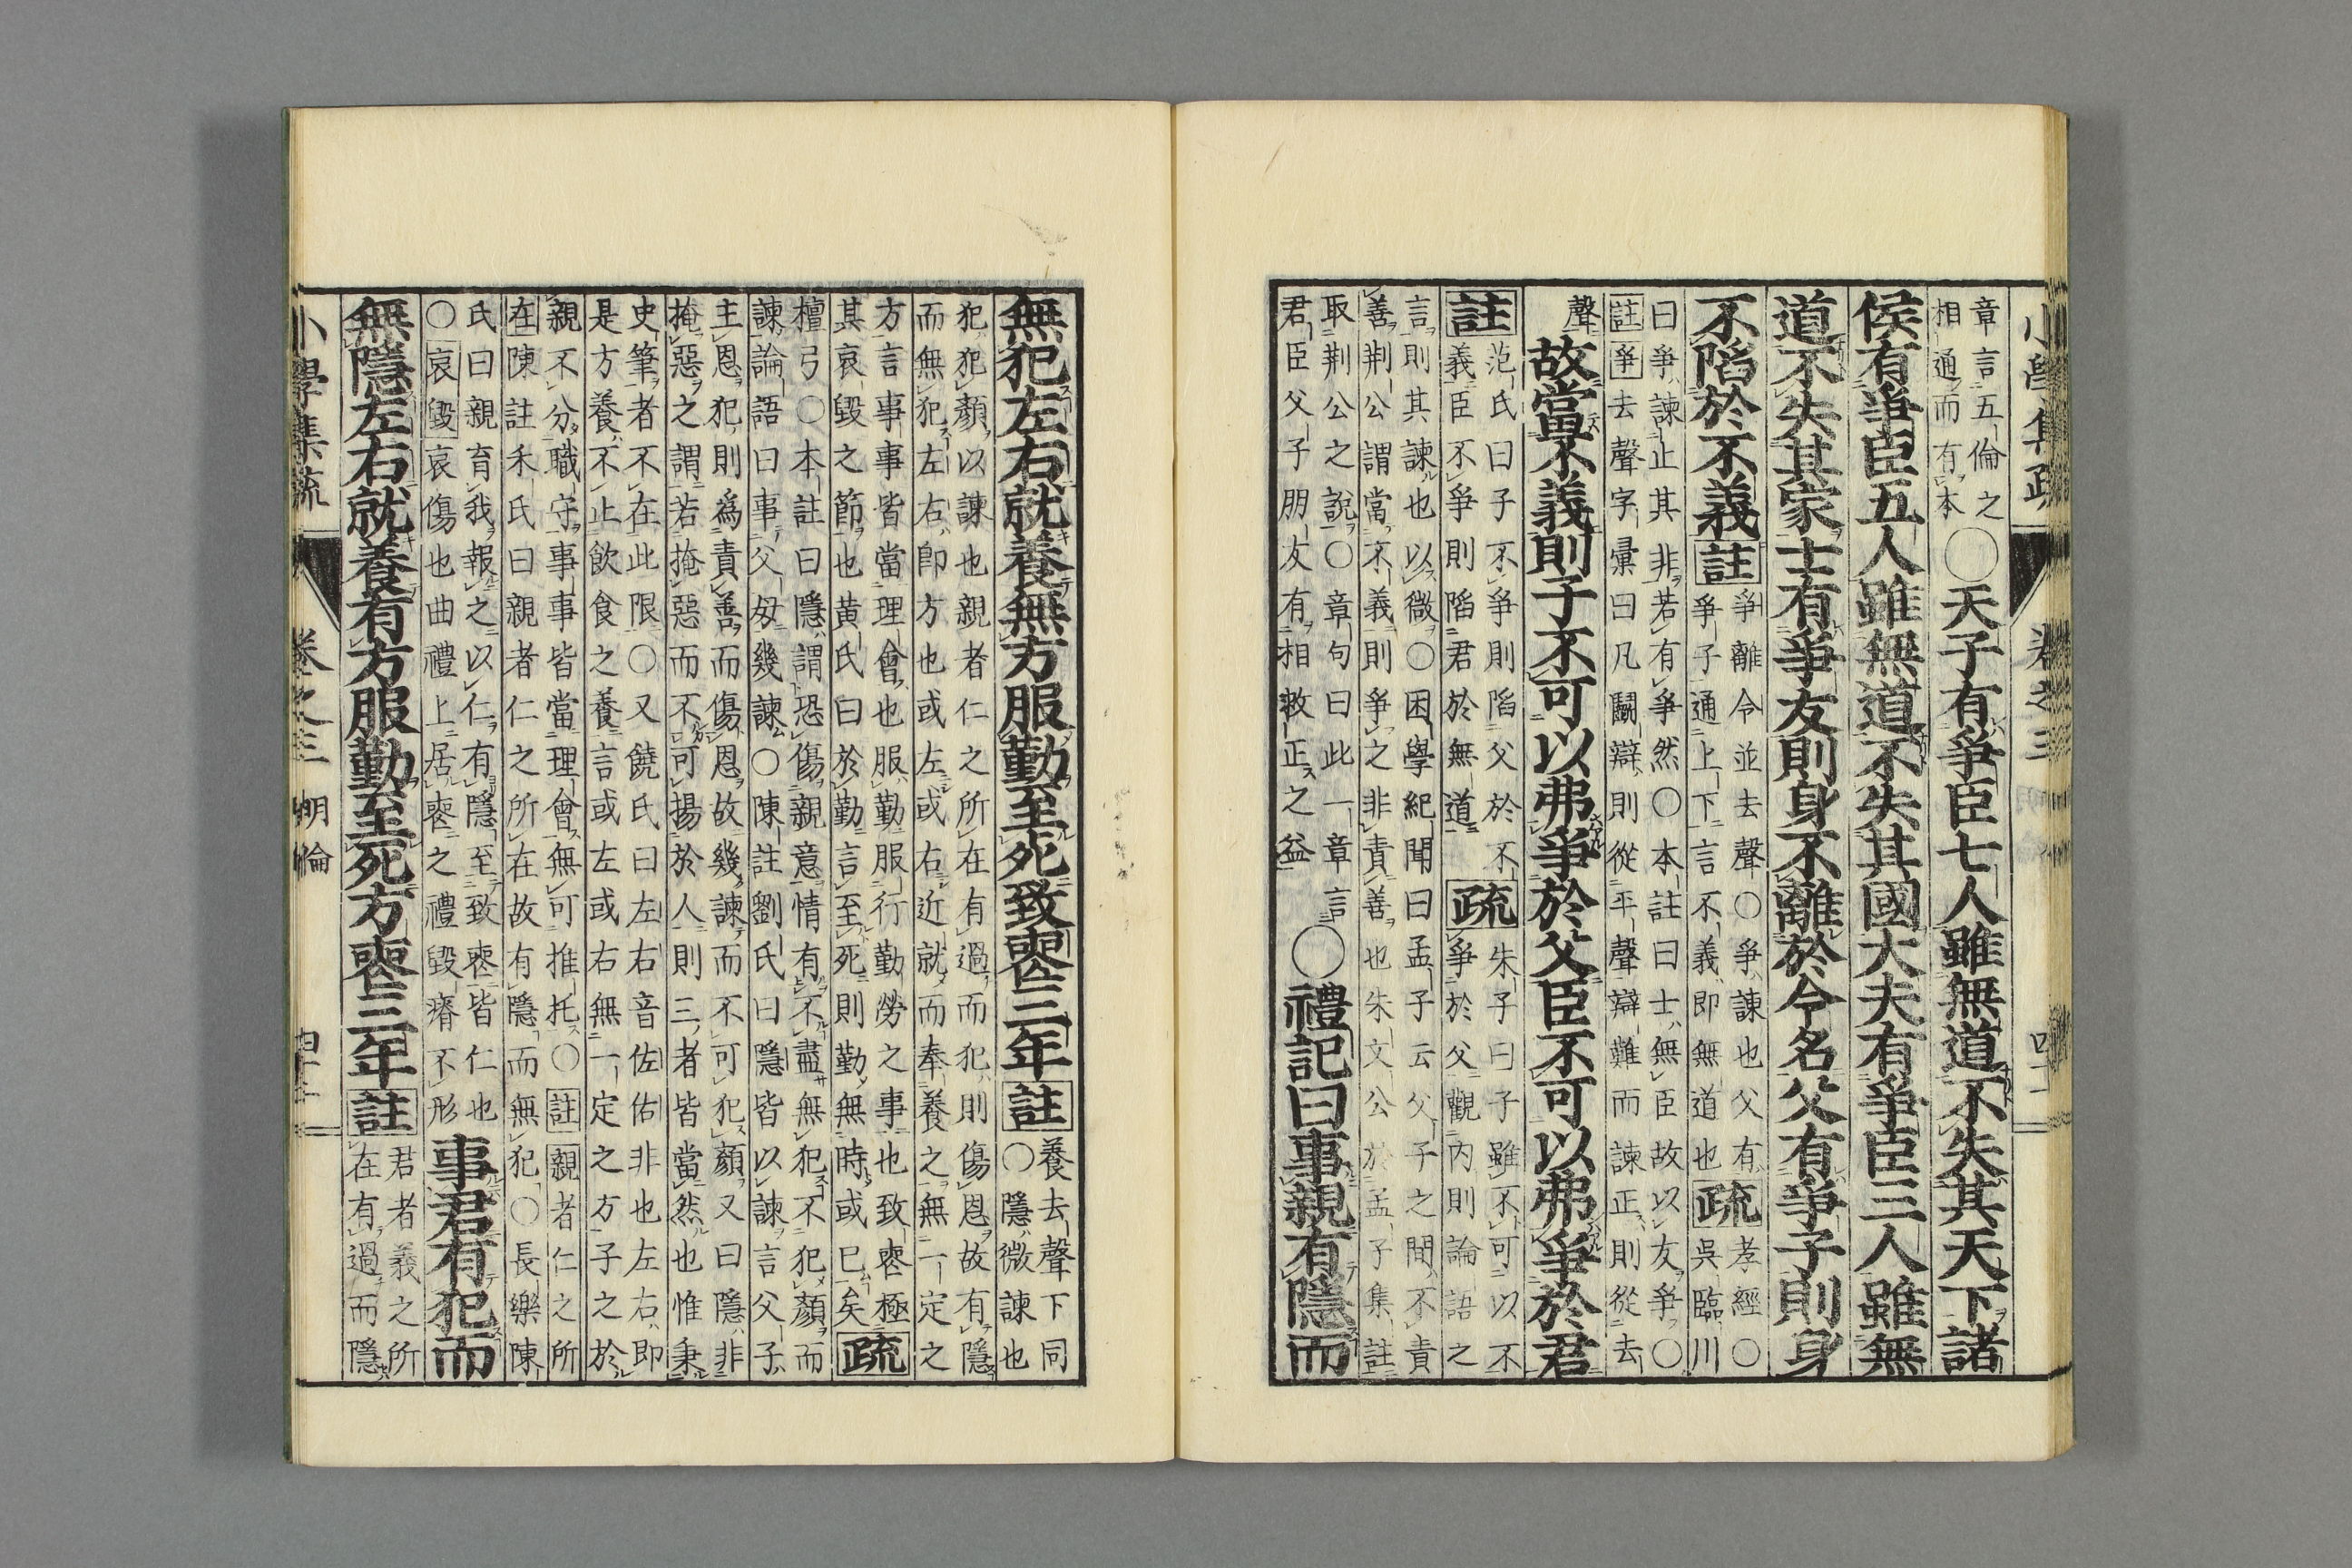 小學集疏 卷之三
章言五倫之
相通而有本
○天子有爭臣七人雖無道不失其天下諸
侯有爭臣五人雖無道不失其國大夫有爭臣三人雖無
道不失其家士有爭友則身不離於令名父有爭子則身
不陷於不義註
爭離令並去聲○爭諫也父有
爭子通上下言不義即無道也
疏
孝經○
吳臨川
曰爭諫止其非若有爭然○本註曰士無臣故以友爭○
註爭去聲字彙曰凡鬭辯則從平聲辯難而諫正則從去
聲
故當不義則子不可以弗爭於父臣不可以弗爭於君
註
范氏曰子不爭則陷父於不
義臣不爭則陷君於無道
疏
朱子曰子雖不可以不
爭於父觀內則論語之
言則其諫也以微○困學紀聞曰孟子云父子之間不責
善荆公謂當不義則爭之非責善也朱文公於孟子集註
取荆公之說○章句曰此一章言
君臣父子朋友有相救正之益
○禮記曰事親有隱而
無犯左右就養無方服勤至死致喪三年註
養去聲下同
○隱微諫也
犯犯顏以諫也親者仁之所在有過而犯則傷恩故有隱
而無犯左右即方也或左或右近就而奉養之無一定之
方言事事皆當理會也服勤服行勤勞之事也致喪極
其哀毀之節也黄氏曰於勤言至死則勤無時或已矣
疏
檀弓○本註曰隱謂恐傷親意情有不盡無犯不犯顏而
諫論語曰事父母幾諫○陳註劉氏曰隱皆以諫言父子
主恩犯則爲責善而傷恩故幾諫而不可犯顏又曰隱非
掩惡之謂若掩惡而不可揚於人則三者皆當然也惟秉
史筆者不在此限○又饒氏曰左右音佐佑非也左右即
是方養不止飲食之養言或左或右無一定之方子之於
親不分職守事事皆當理會無可推托○註親者仁之所
在陳註朱氏曰親者仁之所在故有隱而無犯○長樂陳
氏曰親育我報之以仁有隱至致喪皆仁也
○哀毀哀傷也曲禮上居喪之禮毀瘠不形
事君有犯而
無隱左右就養有方服勤至死方喪三年註
君者義之所
在有過而隱
小學集疏 卷之三 明倫